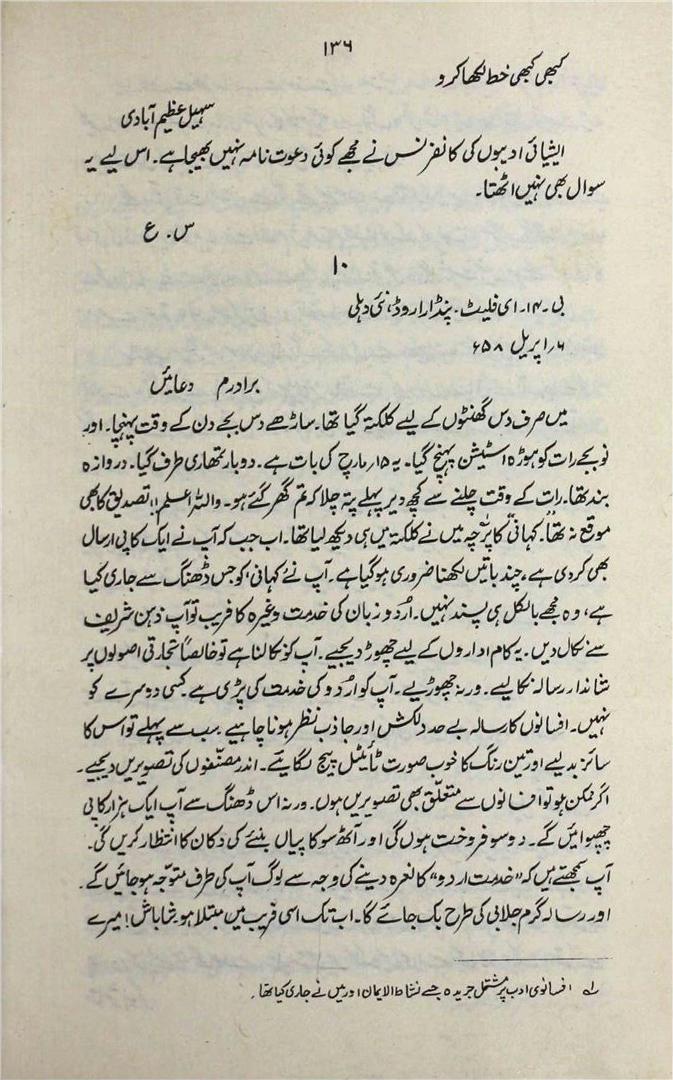 ۱۳۶
کبھی کبھی خط لکھا کرو
سہیل عظیم آبادی
ایشیائی ادیبوں کی کانفرنس نے مجھے کوئی دعوت نامہ نہیں بھیجا ہے۔ اس لیے یہ
سوال بھی نہیں اٹھتا۔
س۔ ع
۱۰
بی۔ ۱۴۔ ای فلیٹ۔ پنڈارا روڈ، نئی دہلی
۶؍ اپریل ۵۸ء
برادرم دعائیں
میں صرف دس گھنٹوں کے لیے کلکتہ گیا تھا۔ ساڑھے دس بجے دن کے وقت پہنچا۔ اور
نو بجے رات کو ہوڑہ اسٹیشن پہنچ گیا۔ یہ ۱۵؍ مارچ کی بات ہے۔ دوبار تمھاری طرف گیا۔ دروازہ
بند تھا۔ رات کے وقت چلنے سے کچھ دیر پہلے پتہ چلا کہ تم گھر گئے ہو۔ واللہ اعلم!! تصدیق کا بھی
موقع نہ تھا۔ "کہانی" کا پرچہ میں نے کلکتہ میں ہی دیکھ لیا تھا۔ اب جب کہ آپ نے ایک کاپی ارسال
بھی کردی ہے، چند باتیں لکھنا ضروری ہوگیا ہے۔ آپ نے 'کہانی' کو جس ڈھنگ سے جاری کیا
ہے، وہ مجھے بالکل ہی پسند نہیں۔ اُردو زبان کی خدمت وغیرہ کا فریب تو آپ ذہن شریف
سے نکال دیں۔ یہ کام اداروں کے لیے چھوڑ دیجیے۔ آپ کو نکالنا ہے تو خالصاً تجارتی اصولوں پر
شاندار رسالہ نکالیے۔ ورنہ چھوڑیے۔ آپ کو اُردو کی خدمت کی پڑی ہے۔ کسی دوسرے کو
نہیں۔ افسانوں کا رسالہ بے حد دلکش اور جاذب نظر ہونا چاہیے۔ سب سے پہلے تو اس کا
سائز بدلیے اور تین رنگ کا خوب صورت ٹائیٹل پیج لگایئے۔ اندر مصنّفوں کی تصویریں دیجیے۔
اگر ممکن ہو تو افسانوں سے متعلّق بھی تصویریں ہوں۔ ورنہ اس ڈھنگ سے آپ ایک ہزار کاپی
چھپوائیں گے۔ دو سو فروخت ہوں گی اور آٹھ سو کاپیاں بنئے کی دکان کا انتظار کریں گی۔
آپ سمجھتے ہیں کہ "خدمت اردو" کا نعرہ دینے کی وجہ سے لوگ آپ کی طرف متوجّہ ہو جائیں گے۔
اور رسالہ گرم جلابی کی طرح بک جائے گا۔ اب تک اسی فریب میں مبتلا ہو۔ شاباش! میرے
لے افسانوی ادب پر مشتمل جریدہ جسے نشاط الایمان اور میں نے جاری کیا تھا۔